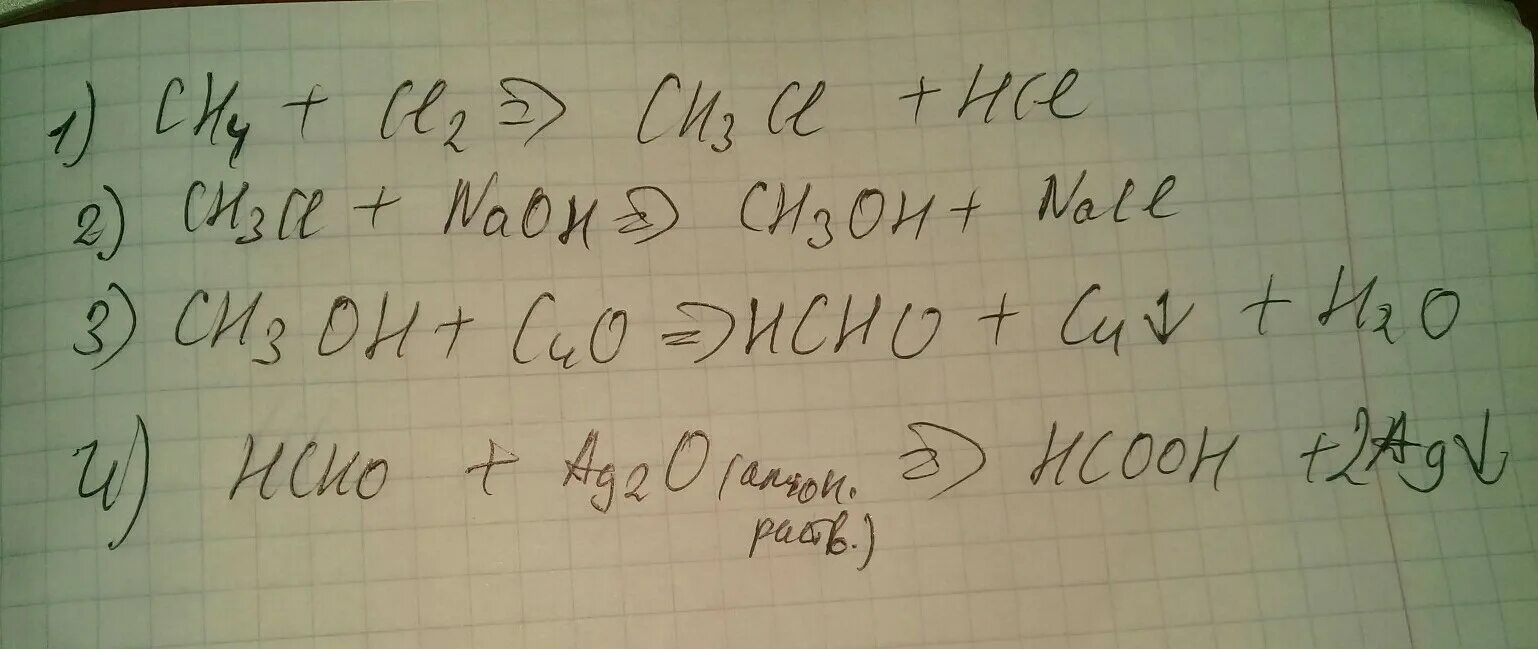 1) CH₄ + Cl₂ ⇒ CH₃Cl + HCl
2) CH₃Cl + NaOH ⇒ CH₃OH + NaCl
3) CH₃OH + CuO ⇒ HCHO + Cu↓ + H₂O
4) HCHO + Ag₂O (аммон. ⇒ HCOOH + 2Ag↓
раств.)